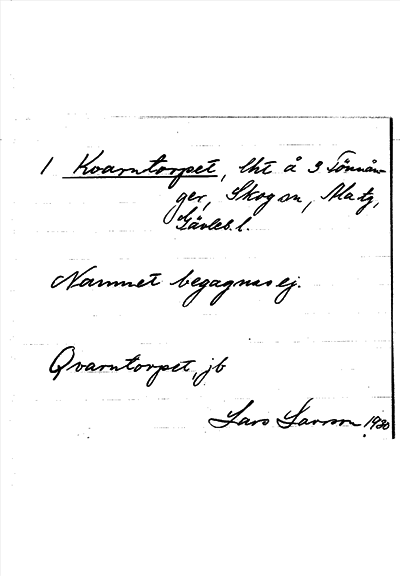 1 Kvarntorpet, lht å 3 Tönnån-
ger, Skog sn, Ala tg,
Gävleb. l.
Namnet begagnas ej.
Qvarntorpet, jb
Lars Larson 1930